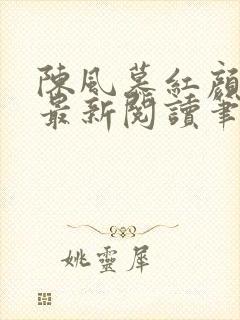 陳風暮紅顏
最新閱讀筆
姚靈犀